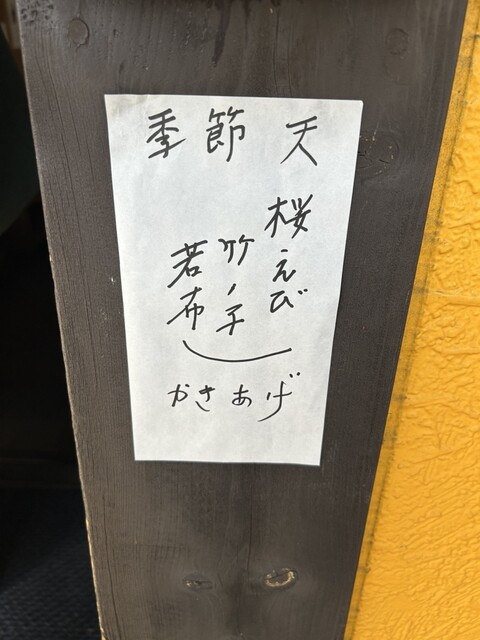 季節 天
桜えび
竹ノ子
若布
かきあげ